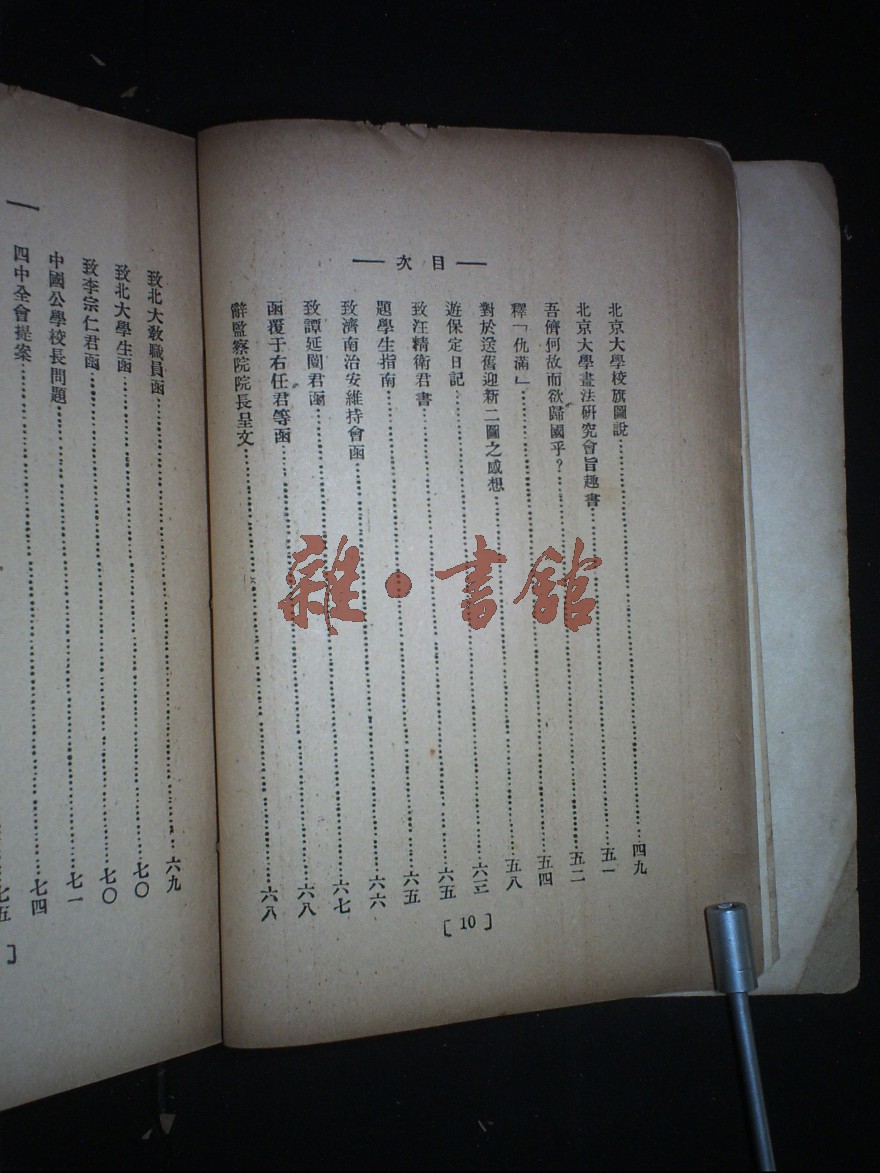 目次
北京大學校旗圖說……四九
北京大學畫法研究會旨趣書……五一
吾儕何故而欲歸國乎?……五二
釋「仇滿」……五四
對於送舊迎新二圖之感想……五八
遊保定日記……六三
致汪精衛君書……六五
題學生指南……六五
致濟南治安維持會函……六六
致譚延闓君函……六七
函覆于右任君等函……六八
辭監察院院長呈文……六八
[10]
致北大教職員函……六九
致北大學生函……七〇
致李宗仁君函……七〇
中國公學校長問題……七一
四中全會提案……七四
七五
雜·書館